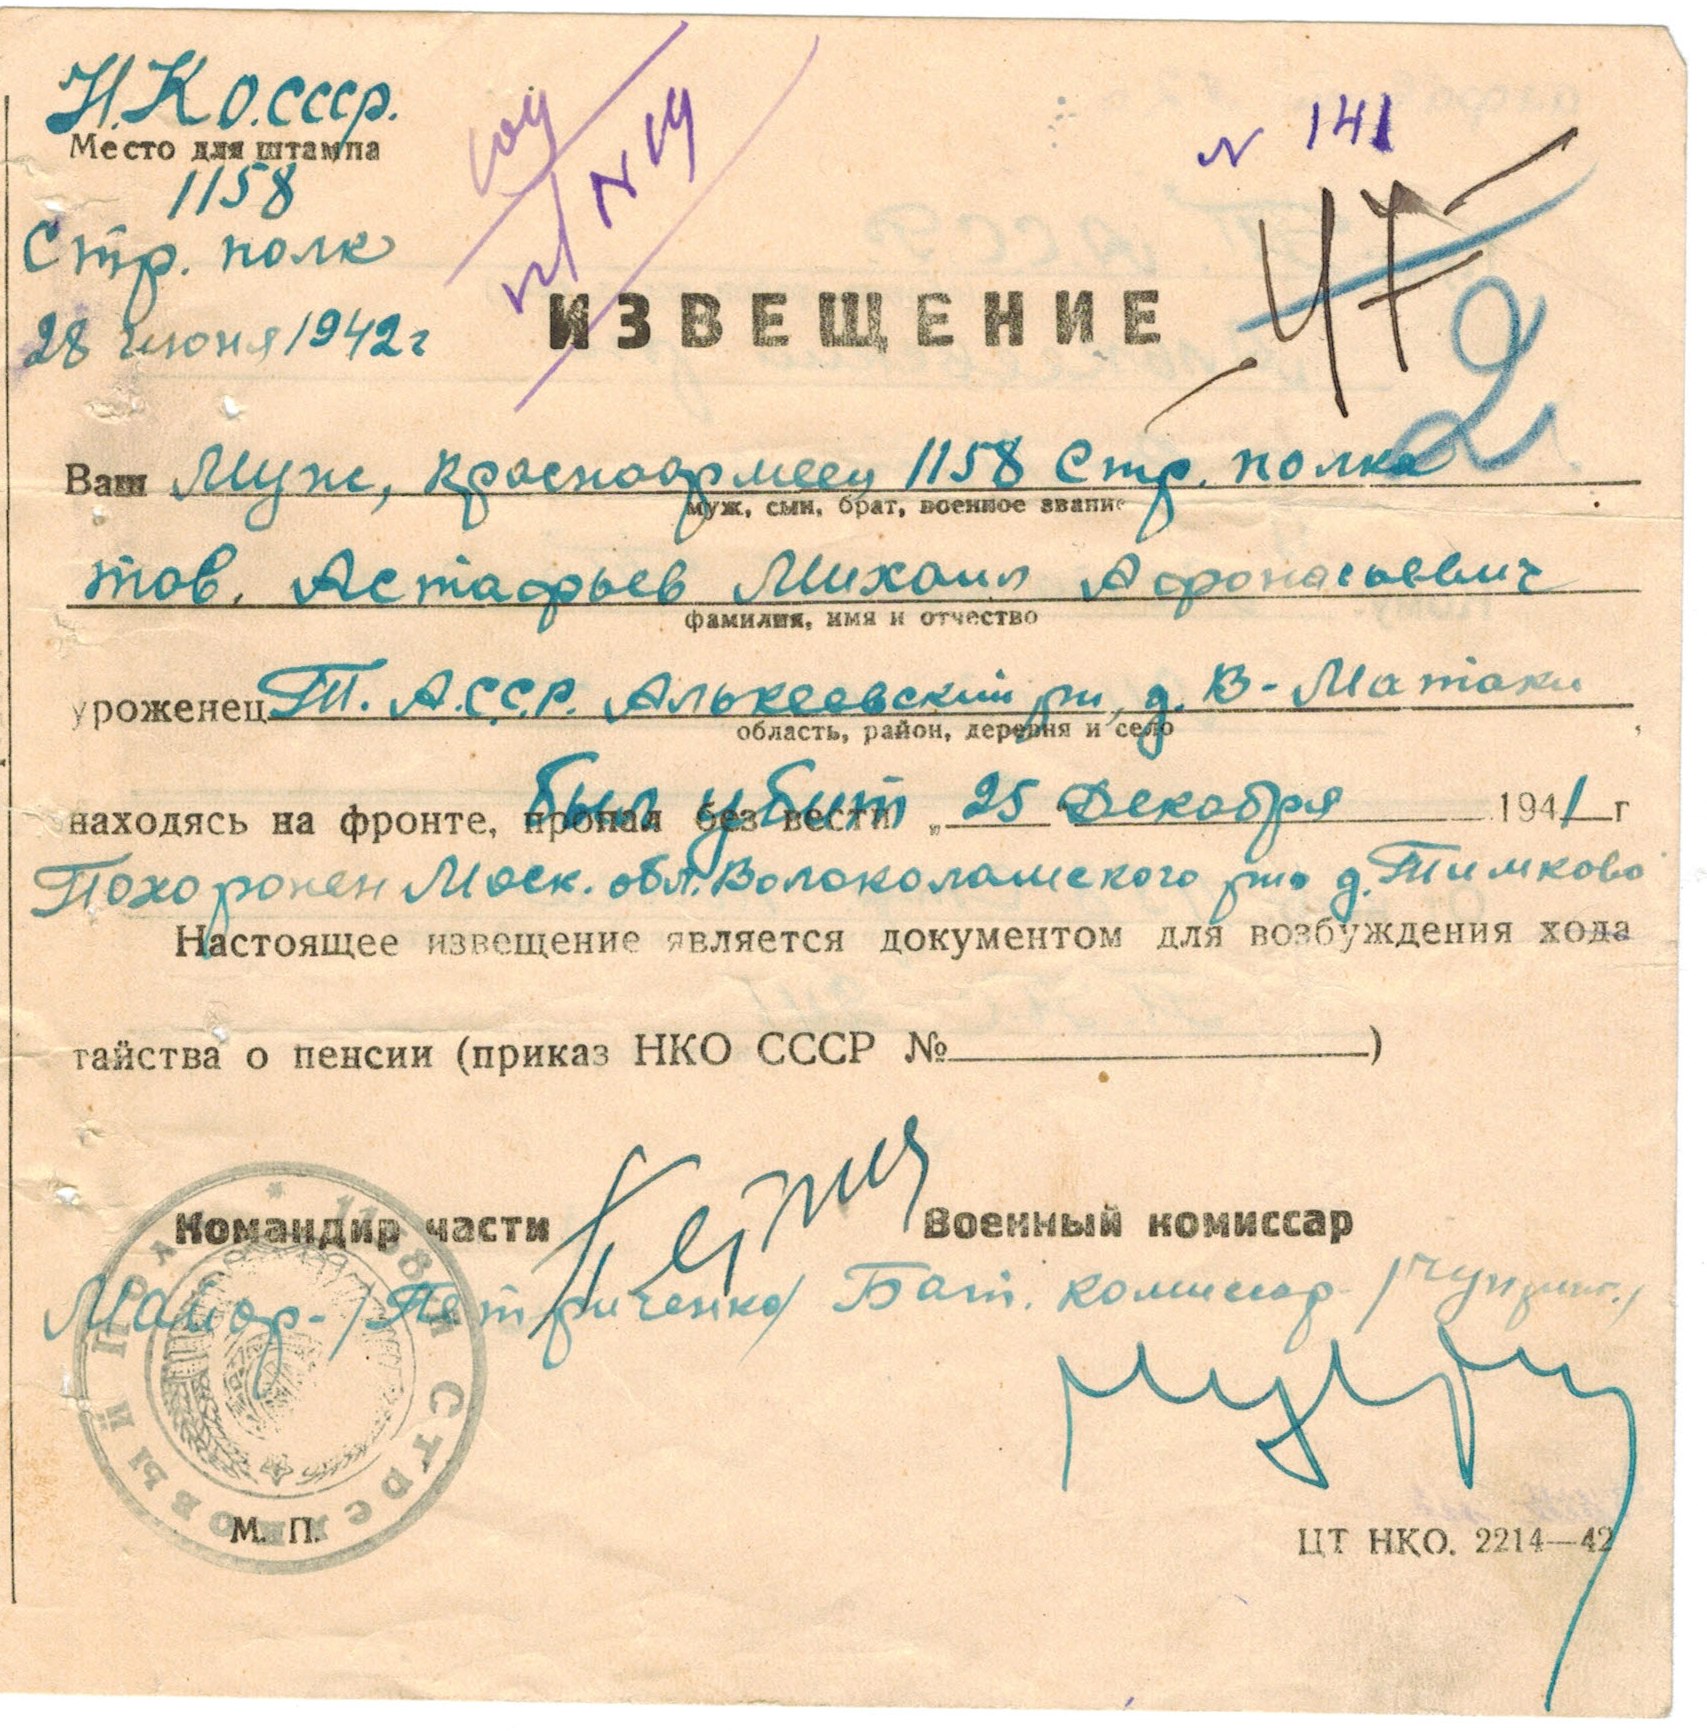 Н.К.О.СССР.
Место для штампа
1158
Стр. полк
28 июня 1942 г
N 19
N 141
47
2
ИЗВЕЩЕНИЕ
Ваш Муж, красноармеец 1158 Стр. полка
муж, сын, брат, военное звание
тов. Астафьев Михаил Афонасьевич
фамилия, имя и отчество
уроженец Т. А.С.С.Р. Алькеевский рн, д. В-Матаки
область, район, деревня и село
находясь на фронте, пропал без вести был убит „ 25 Декабря 1941 г
Похоронен Моск. обл. Волоколамского рна д. Тимково
Настоящее извещение является документом для возбуждения хода
тайства о пенсии (приказ НКО СССР № )
Командир части Военный комиссар
Майор- /Петриченко/ Бат. комиссар
1158 Й СТРЕЛКОВЫЙ П
М. П.
ЦТ НКО. 2214—42